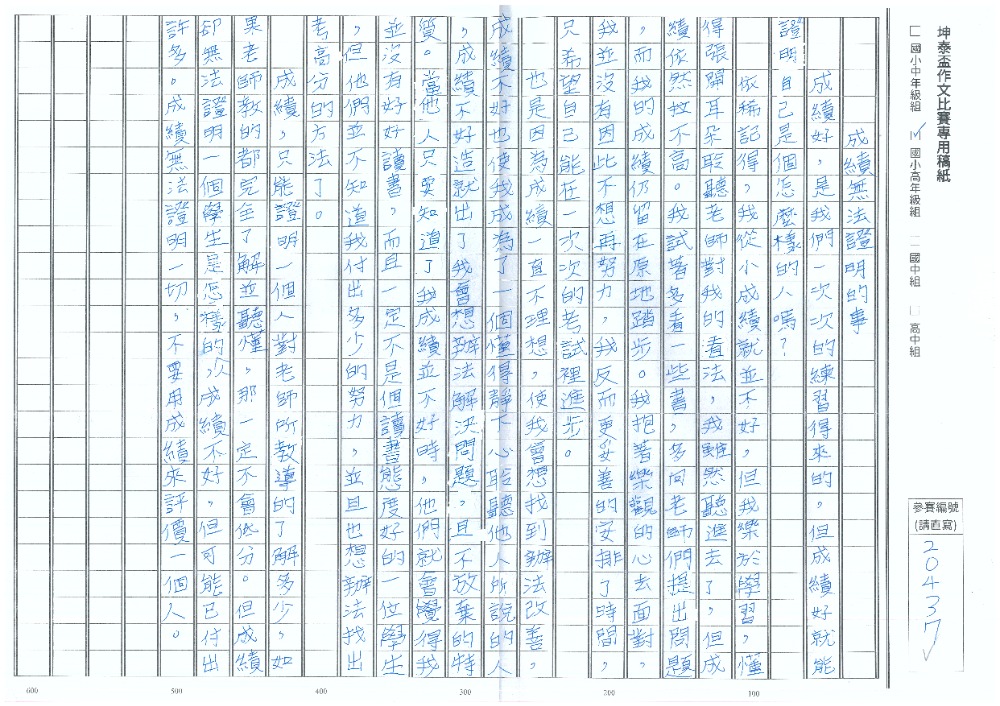 坤泰盃作文比賽專用稿紙
國小中年級組 ✓國小高年級組 國中組 高中組
參賽編號
(請直寫)
20437
成績無法證明的事
成績好,是我們一次次的練習得來的。但成績好就能
證明自己是個怎麼樣的人嗎?
依稀記得,我從小成績就並不好,但我樂於學習,懂
得張開耳朵聆聽老師對我的看法,我雖然聽進去了,但成
績依然拉不高。我試著多看一些書,多向老師們提出問題
,而我的成績仍留在原地踏步。我抱著樂觀的心去面對,
我並沒有因此不想再努力,我反而更妥善的安排了時間,
只希望自己能在一次次的考試裡進步。
也是因為成績一直不理想,使我會想找到辦法改善,
成績不好也使我成為了一個懂得靜下心聆聽他人所說的人
,成績不好造就出了我會想辦法解決問題,且不放棄的特
質。當他人只要知道了我成績並不好時,他們就會覺得我
並沒有好好讀書,而且一定不是個讀書態度好的一位學生
,但他們並不知道我付出多少的努力,並且也想辦法找出
考高分的方法了。
成績,只能證明一個人對老師所教導的了解多少,如
果老師教的都完全了解並聽懂,那一定不會低分。但成績
卻無法證明一個學生是怎樣的,次成績不好,但可能已付出
許多。成績無法證明一切,不要用成績來評價一個人。
100
200
300
400
500
600